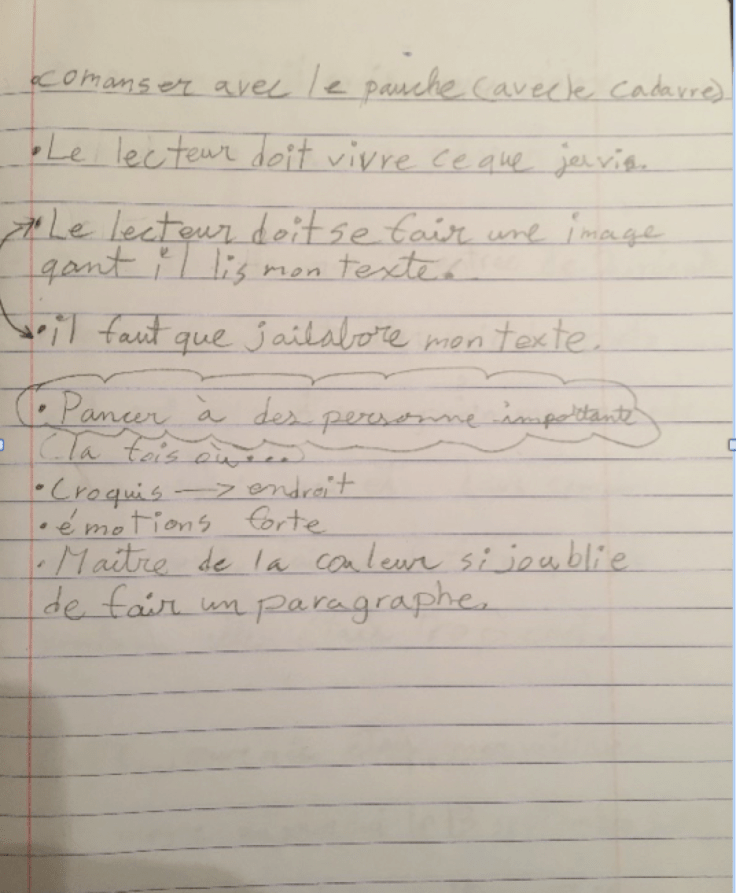 • comanser avec le panche (avec le cadavre)
• Le lecteur doit vivre ce que je vis.
• Le lecteur doit se fair une image
qant il lis mon texte.
• il faut que jailabore mon texte.
• Pancer à des personne importante
(la fois où...)
• Croquis —> endroit
• émotions forte
• Maitre de la couleur si joublie
de fair un paragraphe.